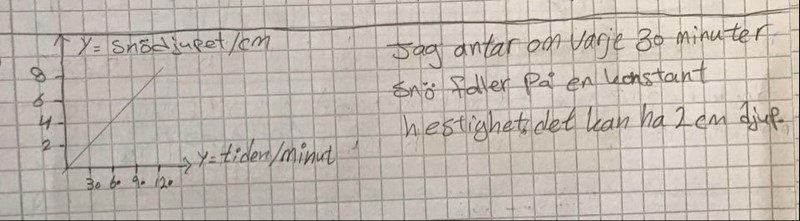 Y = snödjupet/cm
8
6
4
2
30 60 90 120
Y = tiden/minut
Jag antar om varje 30 minuter
snö faller på en konstant
hestighet, det kan ha 2 cm djup.